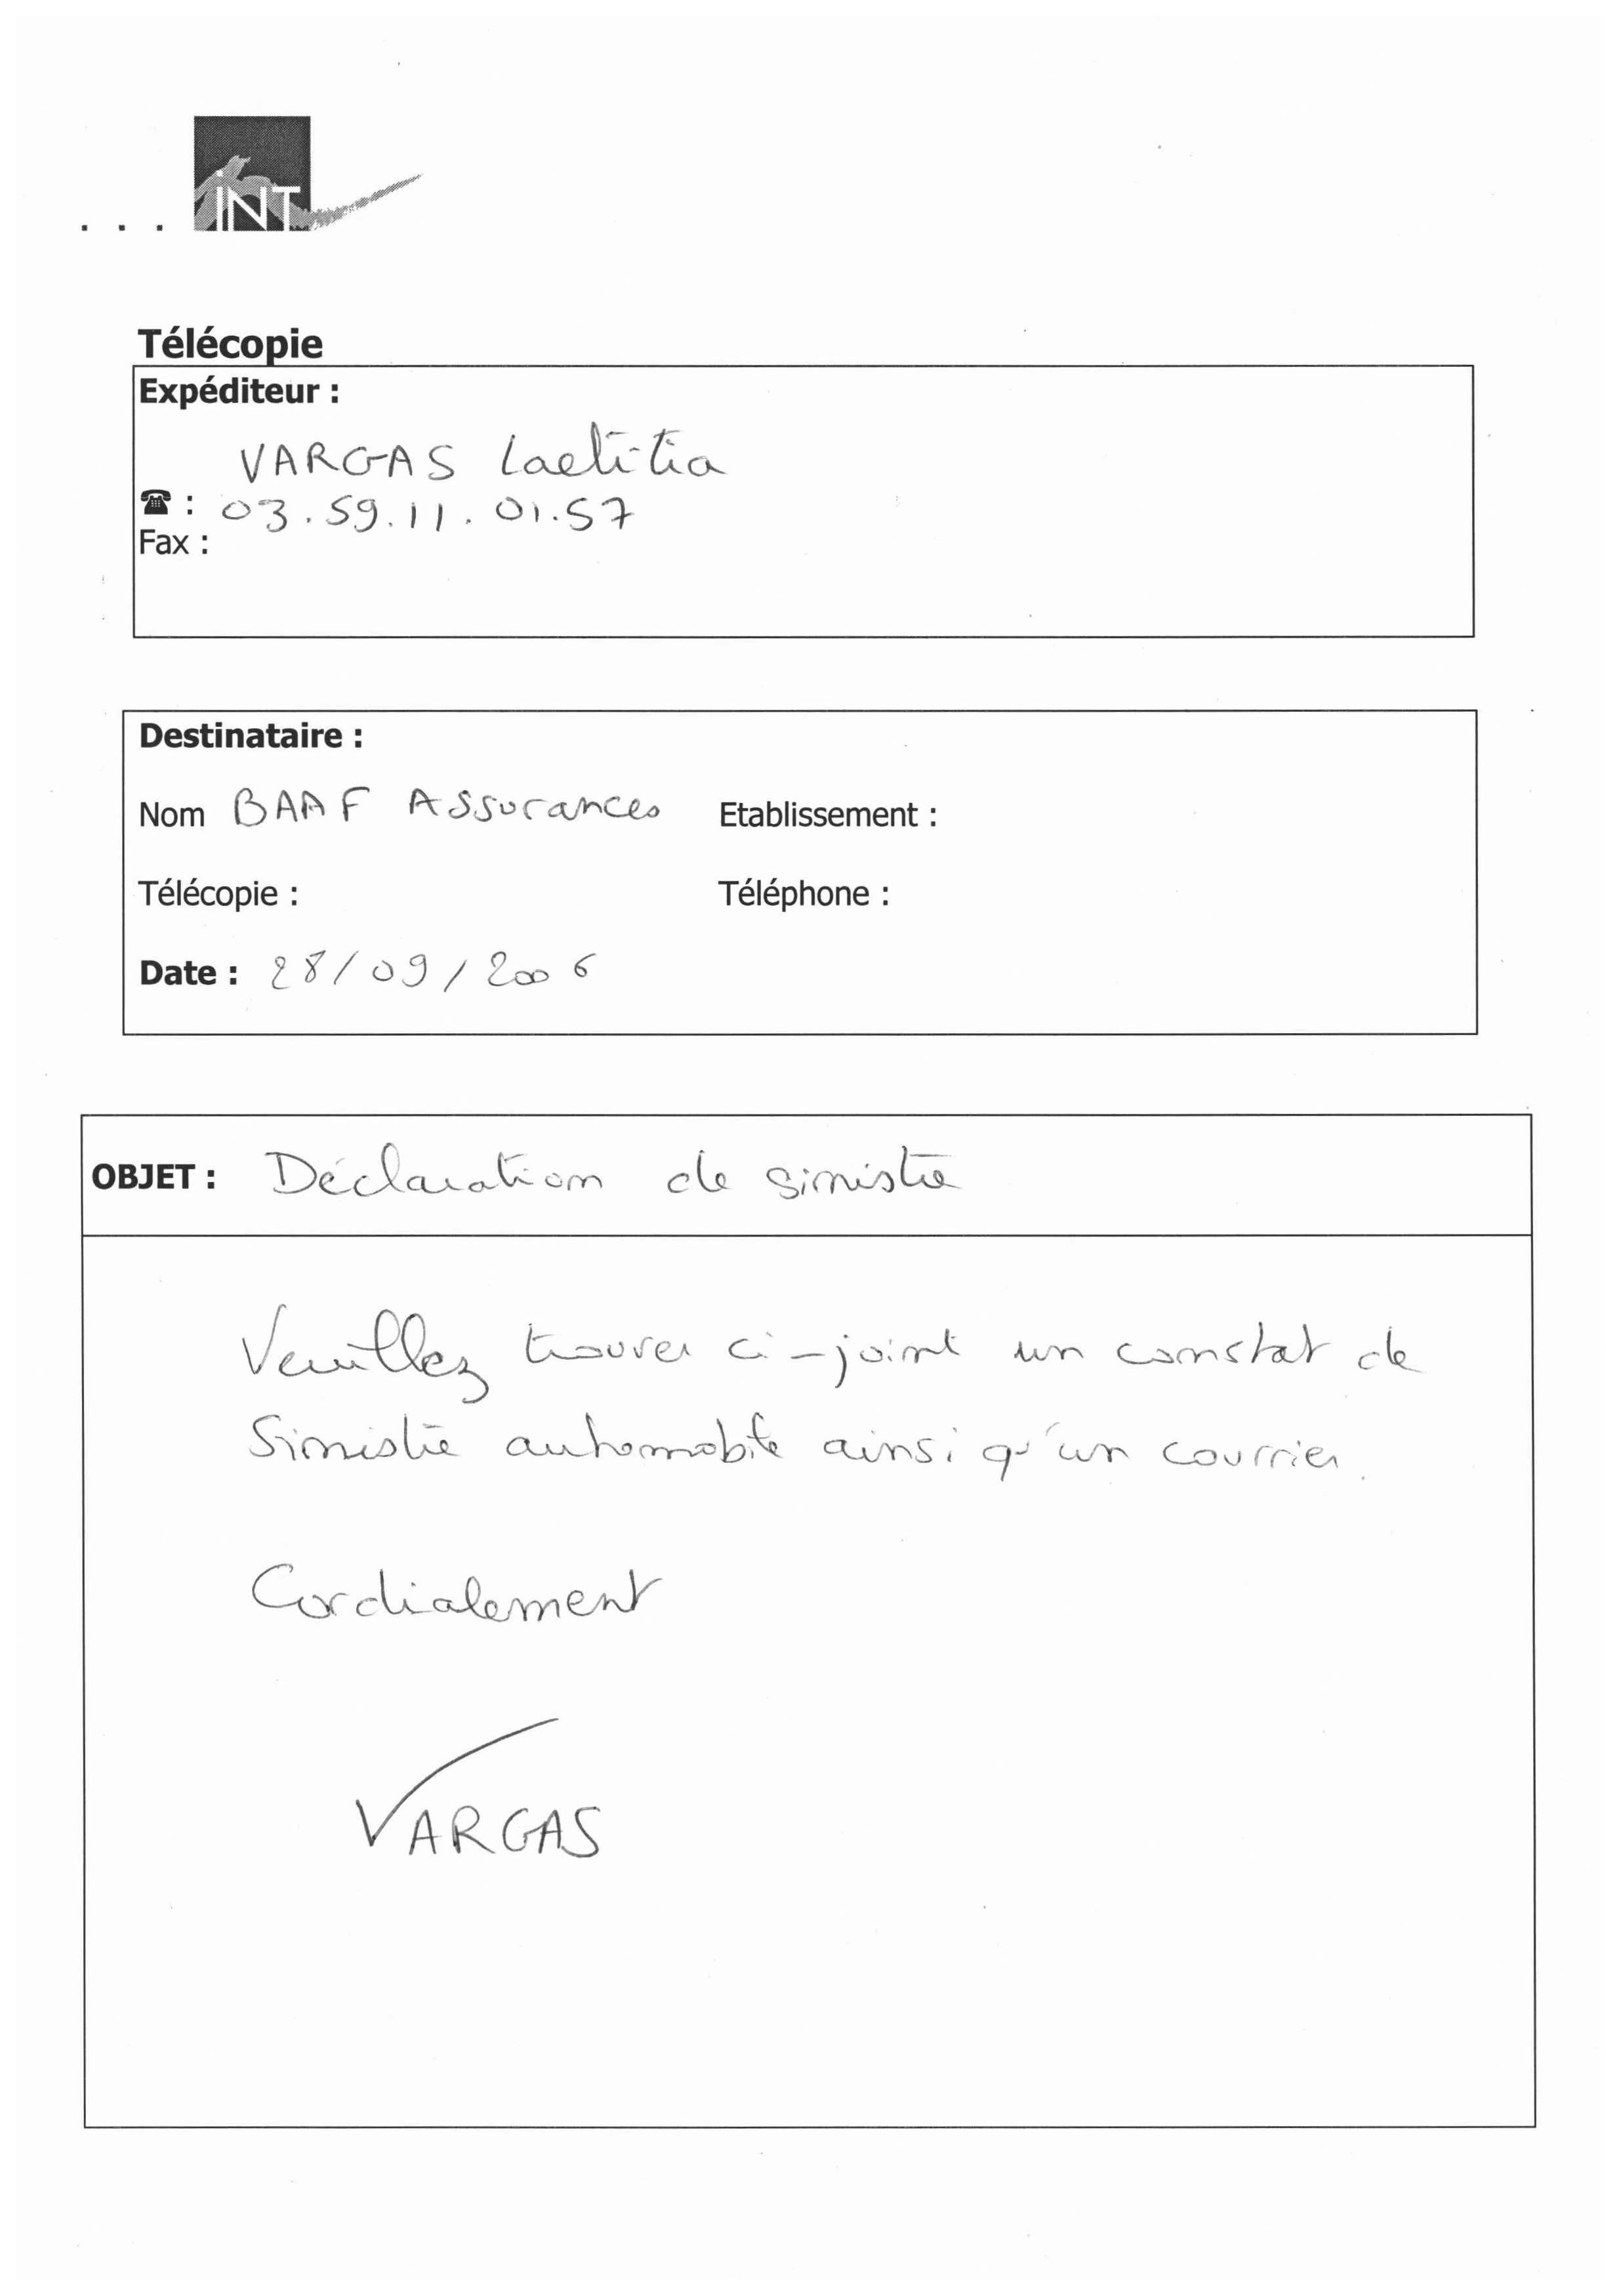 . . . INT
Télécopie
Expéditeur :
VARGAS Laetitia
☎ : 03.59.11.01.57
Fax :
Destinataire :
Nom BAAF Assurances Etablissement :
Télécopie : Téléphone :
Date : 28/09/2006
OBJET : Déclaration de sinistre
Veuillez trouver ci-joint un constat de
Sinistre automobile ainsi qu'un courrier.
Cordialement
VARGAS